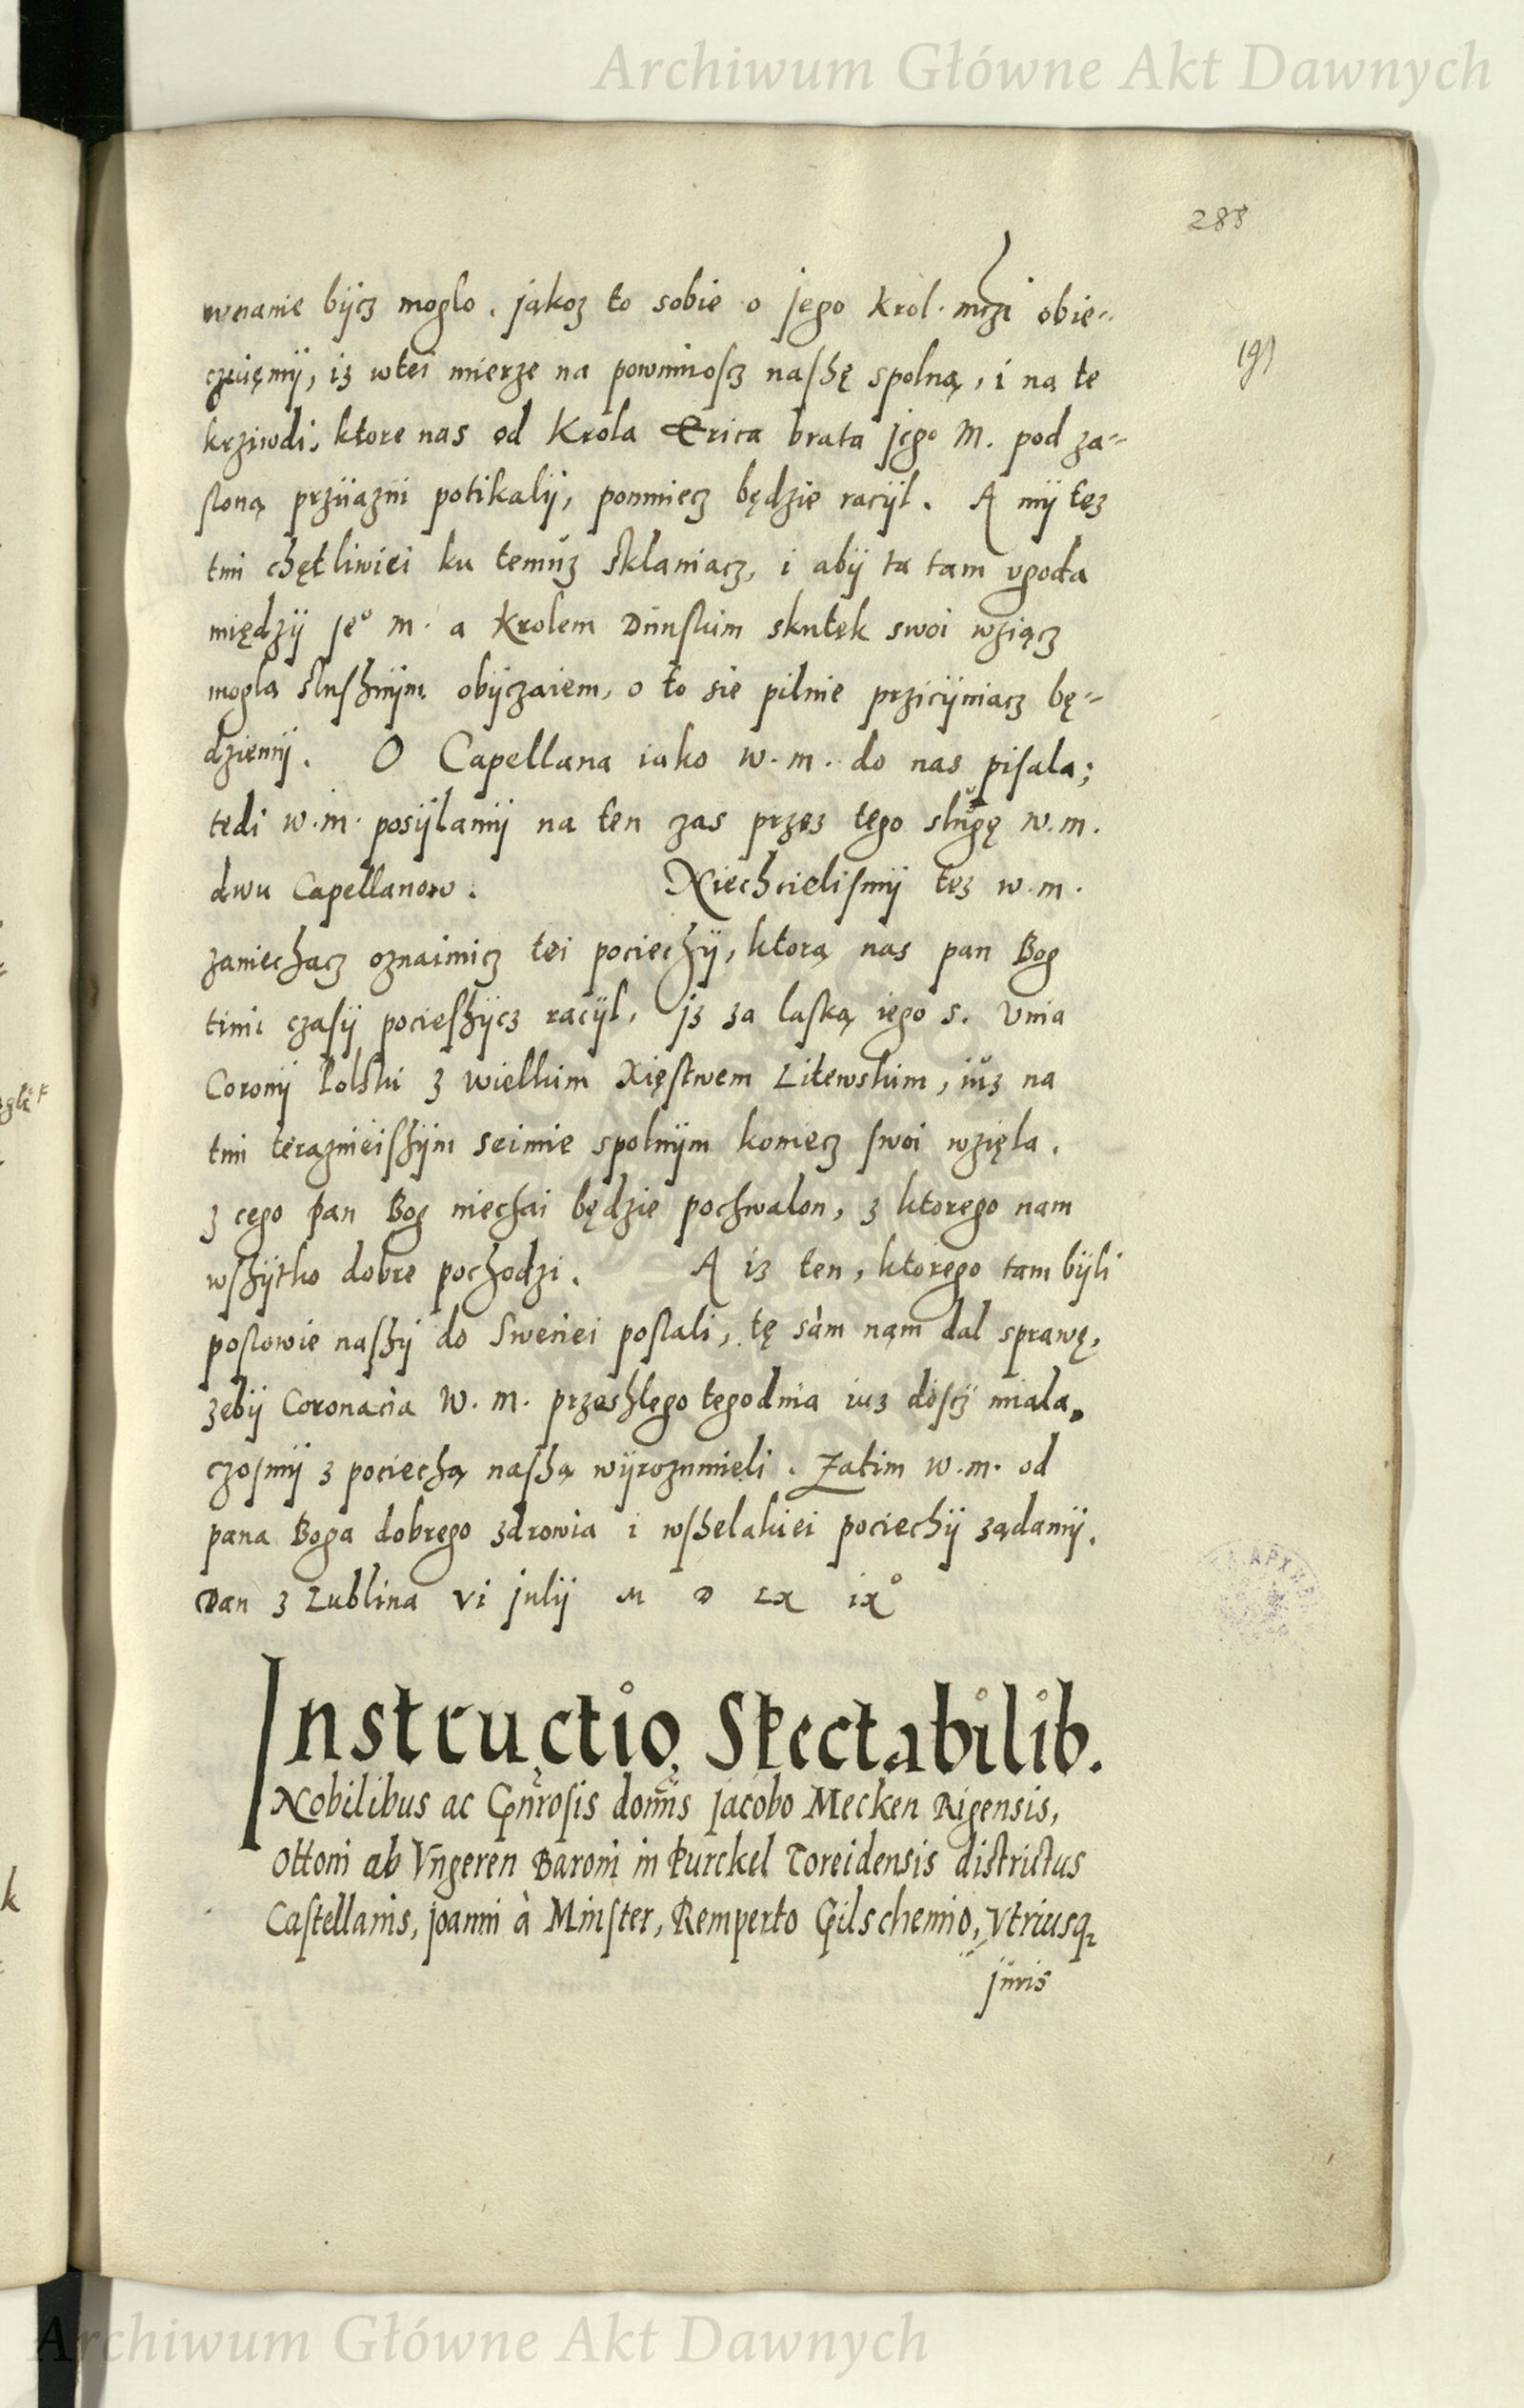 Archiwum Główne Akt Dawnych
288
wnanie bijcz moglo. jakoz to sobie o jego Krol. mczi obie-
czuięmij, iz wtei mierze na powinnoscz nashę spolną, i na te
(9)
krziwdi, ktore nas od Krola Erica brata jego M. pod za-
sloną prziiazni potikalij, pomniecz będzie racijl. A mij tez
tmi chętliwiei ku temuz sklaniacz, i abij ta tam vgoda
międzij Je° M. a Krolem Dunskim skutek swoi wziącz
mogla slushnijm obijczaiem, o to sie pilnie przicijniacz bę-
dziemij. O Capellana iako w. m. do nas pisala;
tedi w. m. posijlamij na ten zas przez tego slugę w. m.
dwu Capellanow. Niechcielismij tez w. m.
zaniechacz oznaimicz tei pociechij, ktorą nas pan Bog
timi czasij pocieshijcz racijl, Jz za laską iego s. Vnia
Coronij Polski z wielkim Xięstwem Litewskim, iuz na
tmi teraznieishijm Seimie spolnijm koniecz swoi wzięla.
z cego Pan Bog niechai będzie pochwalon, z ktorego nam
wshijtko dobre pochodzi. A iz ten, ktorego tam bijli
poslowie nashij do Sweciei poslali, tę sam nam dal sprawę,
zebij Coronacia W. m. przeshlego tegodnia iuz doscz miala,
czosmij z pociechą nashą wijrozumieli. Zatim w. m. od
pana Boga dobrego zdrowia i wshelakiei pociechij ządamij.
Dan z Lublina vi julij M D LX ix°
Instructio Spectabilib.
Nobilibus ac Gnrosis domis Jacobo Mecken Rigensis,
Ottoni ab Vngeren Baroni in Purckel Toreidensis districtus
Castellanis, Joanni à Minster, Remperto Gilschemio, Vtriusq
juris
Archiwum Główne Akt Dawnych